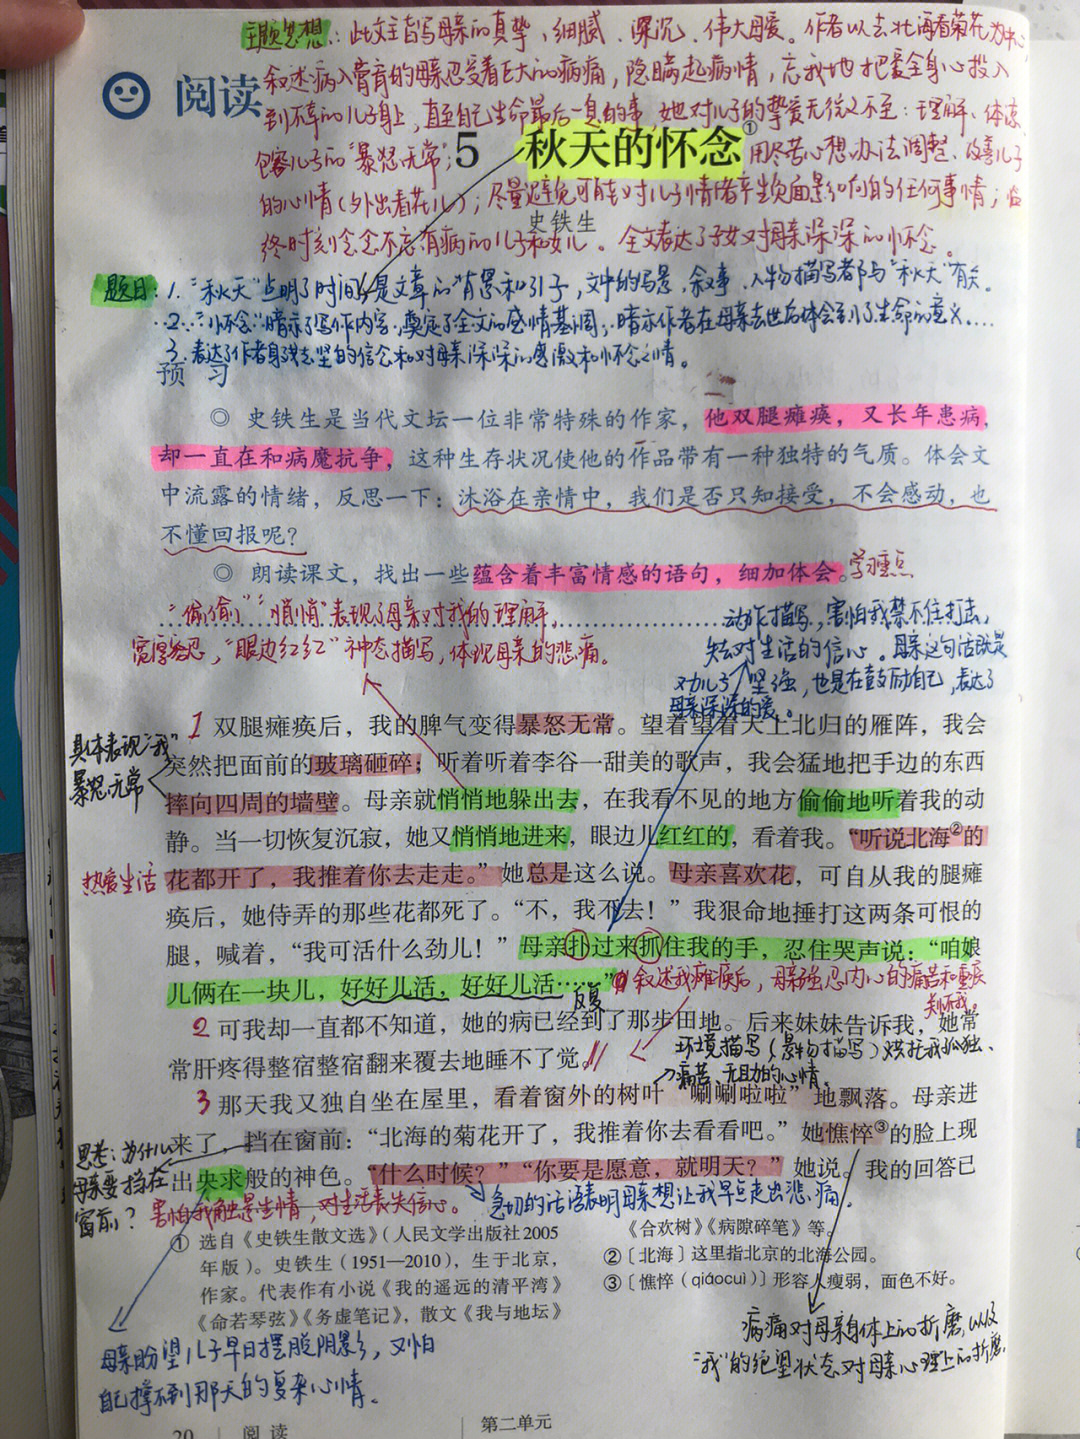 主题思想:此文主旨写母亲的真挚、细腻、深沉、伟大母爱。作者以去北海看菊花为中心,
叙述病入膏肓的母亲忍受着巨大的病痛,隐瞒起病情,忘我地把爱全身心投入
阅读
到不幸的儿子身上,直至自己生命最后一息的事。她对儿子的挚爱无微不至:理解、体谅、
包容儿子的“暴怒无常”;
5 秋天的怀念①
用尽苦心想办法调整、改善儿子
的心情(外出看花儿);尽量避免可能对儿子情绪产生负面影响的任何事情;临
史铁生
终时刻念念不忘有病的儿子和女儿。全文表达了子女对母亲深深的怀念。
题目:1.“秋天”点明了时间,是文章的背景和引子,文中的写景、叙事、人物描写都与“秋天”有关。
2.“怀念”暗示了写作内容,奠定了全文的感情基调,暗示作者在母亲去世后体会到了生命的意义
3.表达了作者身残志坚的信念和对母亲深深的感激和怀念之情。
预 习
◎ 史铁生是当代文坛一位非常特殊的作家,他双腿瘫痪,又长年患病,
却一直在和病魔抗争,这种生存状况使他的作品带有一种独特的气质。体会文
中流露的情绪,反思一下:沐浴在亲情中,我们是否只知接受,不会感动,也
不懂回报呢?
◎ 朗读课文,找出一些蕴含着丰富情感的语句,细加体会。学习重点
“偷偷”“悄悄”表现了母亲对我的理解、
宽厚容忍,“眼边红红”神态描写,体现母亲的悲痛。
动作描写,害怕我禁不住打击,
失去对生活的信心。母亲这句话既是
对儿子 坚强,也是在鼓励自己,表达了
母亲深深的爱。
1 双腿瘫痪后,我的脾气变得暴怒无常。望着望着天上北归的雁阵,我会
具体表现“我”
暴怒无常
突然把面前的玻璃砸碎;听着听着李谷一甜美的歌声,我会猛地把手边的东西
摔向四周的墙壁。母亲就悄悄地躲出去,在我看不见的地方偷偷地听着我的动
静。当一切恢复沉寂,她又悄悄地进来,眼边儿红红的,看着我。“听说北海②的
热爱生活
花都开了,我推着你去走走。”她总是这么说。母亲喜欢花,可自从我的腿瘫
痪后,她侍弄的那些花都死了。“不,我不去!”我狠命地捶打这两条可恨的
腿,喊着,“我可活什么劲儿!”母亲扑过来抓住我的手,忍住哭声说:“咱娘
儿俩在一块儿,好好儿活,好好儿活……”
反复
叙述我瘫痪后,母亲强忍内心的痛苦和重疾
关怀我。
2 可我却一直都不知道,她的病已经到了那步田地。后来妹妹告诉我,她常
常肝疼得整宿整宿翻来覆去地睡不了觉。
环境描写(景物描写)烘托我孤独、
痛苦、无助的心情。
3 那天我又独自坐在屋里,看着窗外的树叶“唰唰啦啦”地飘落。母亲进
来了,挡在窗前:“北海的菊花开了,我推着你去看看吧。”她憔悴③的脸上现
出央求般的神色。“什么时候?”“你要是愿意,就明天?”她说。我的回答已
思考:为什么
母亲要挡在
窗前?
害怕我触景生情,对生活丧失信心。
急切的话语表明母亲想让我早点走出悲痛
① 选自《史铁生散文选》(人民文学出版社2005
年版)。史铁生(1951—2010),生于北京,
作家。代表作有小说《我的遥远的清平湾》
《命若琴弦》《务虚笔记》,散文《我与地坛》
《合欢树》《病隙碎笔》等。
②〔北海〕这里指北京的北海公园。
③〔憔悴(qiáocuì)〕形容人瘦弱,面色不好。
母亲盼望儿子早日摆脱阴影,又怕
自己撑不到那天的复杂心情。
病痛对母亲身体上的折磨,以及
“我”的绝望状态对母亲心理上的折磨。
20 阅读 第二单元